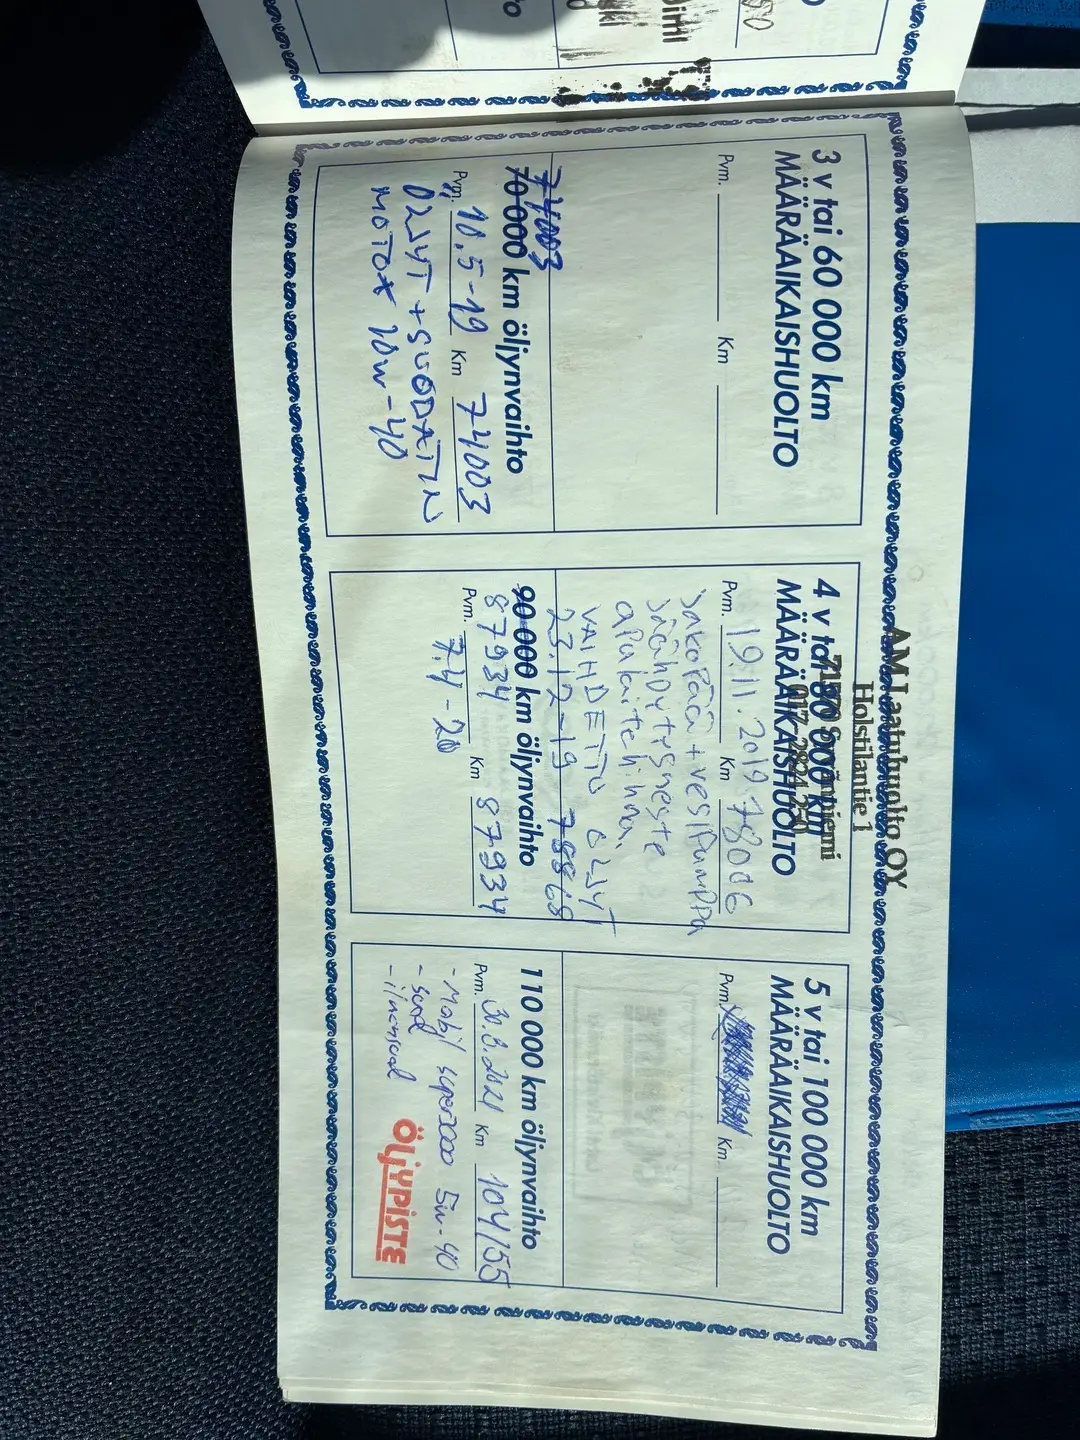 3 v tai 60 000 km
MÄÄRÄAIKAISHUOLTO
Pvm. Km
74003
70 000 km öljynvaihto
Pvm. 10.5-19 Km 74003
ÖLJYT + SUODATIN
MOTOX 10W-40
AM Laatuhuolto OY
Holstilantie 1
4 v tai 80 000 km
MÄÄRÄAIKAISHUOLTO
Pvm. 19.11.2019 Km 78006
Jakopää + vesipumppu
Jäähdytysneste
apulaitehihna.
VAIHDETTU ÖLJYT
23.12-19 78868
90 000 km öljynvaihto
87934
Pvm. 7.4-20 Km 87934
5 v tai 100 000 km
MÄÄRÄAIKAISHUOLTO
Pvm. Km
110 000 km öljynvaihto
Pvm. 30.8.2021 Km 104155
- Mobil super3000 5w-40
- suod
- ilmansuod
ÖLJYPISTE